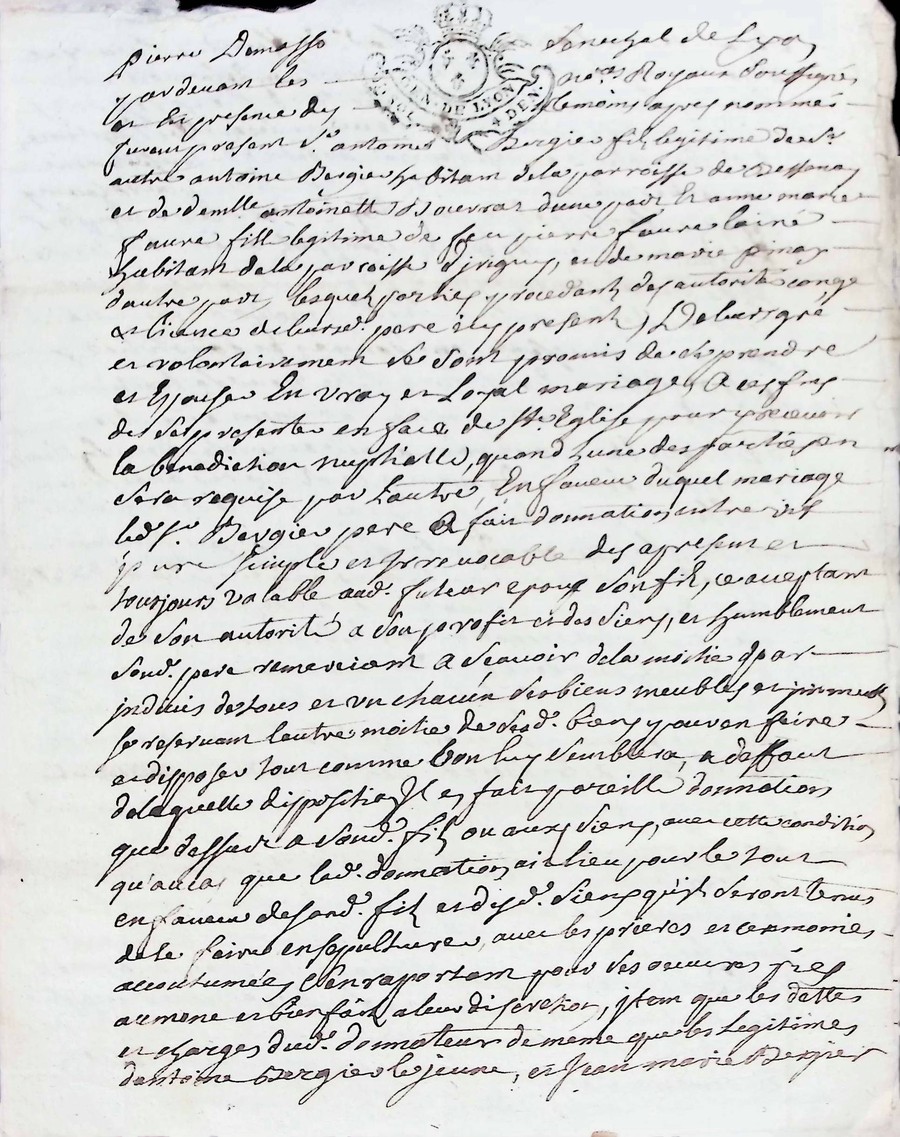 Pierre Demasso Senechal de Lyon
GEN. DE LYON 4 DEN.
pardevant les no.res Royaux Soussignés
et En presence des temoins apres nommés
furent present S.r antoine Bergier fil legitime de S.r
autre antoine Bergier habitant de la parroisse de
et de demlle antoinette d'une part Et anne marie
faure fille legitime de feu pierre faure lainé
habitant de la parroisse d'jrigny, et de marie pinay
dautre part, lesquels parties procedant des autorité congé
et licence de leursd. pere icy present, De leurs gré
et volontairement se sont promis de se prendre
et Epouser En vray et Loyal mariage, A ces fins
de se presenter en face de S.te Eglise pour y recevoir
la benediction nuptialle, quand L'une des parties en
sera requise par Lautre, En faveur duquel mariage
led. S.r Bergier pere a fait donnation entre vifs
pure simple et jrrevocable des apresent et
toujours valable aud. futeur epoux son fil, ce acceptant
de son autorité a son profit et des siens, et humblement
sond. pere remerciant A Scavoir de la moitié par
jndivis de tous et un chacun ses biens meubles et jmmeubl
se reservant lautre moitié de sesd. biens pour en faire
et disposer tout comme bon luy semblera, a deffaut
de laquelle disposition Il en fait pareille donnation
que dessus a sond. fil ou aux siens, avec cette condition
qu'au cas que lad. donnation ait lieu pour le tout
en faveur de sond. fil et desd. siens qu'ils seront tenus
de le faire ensepulturé, avec les prieres et ceremonies
accoutumées s'en raportant pour ses oeuvres pies
aumone et bienfait a leur discretion, jtem que les dettes
et charges dud. donnateur de meme que les legitimes
dantoine Bergier le jeune, et Jean marie Bergier